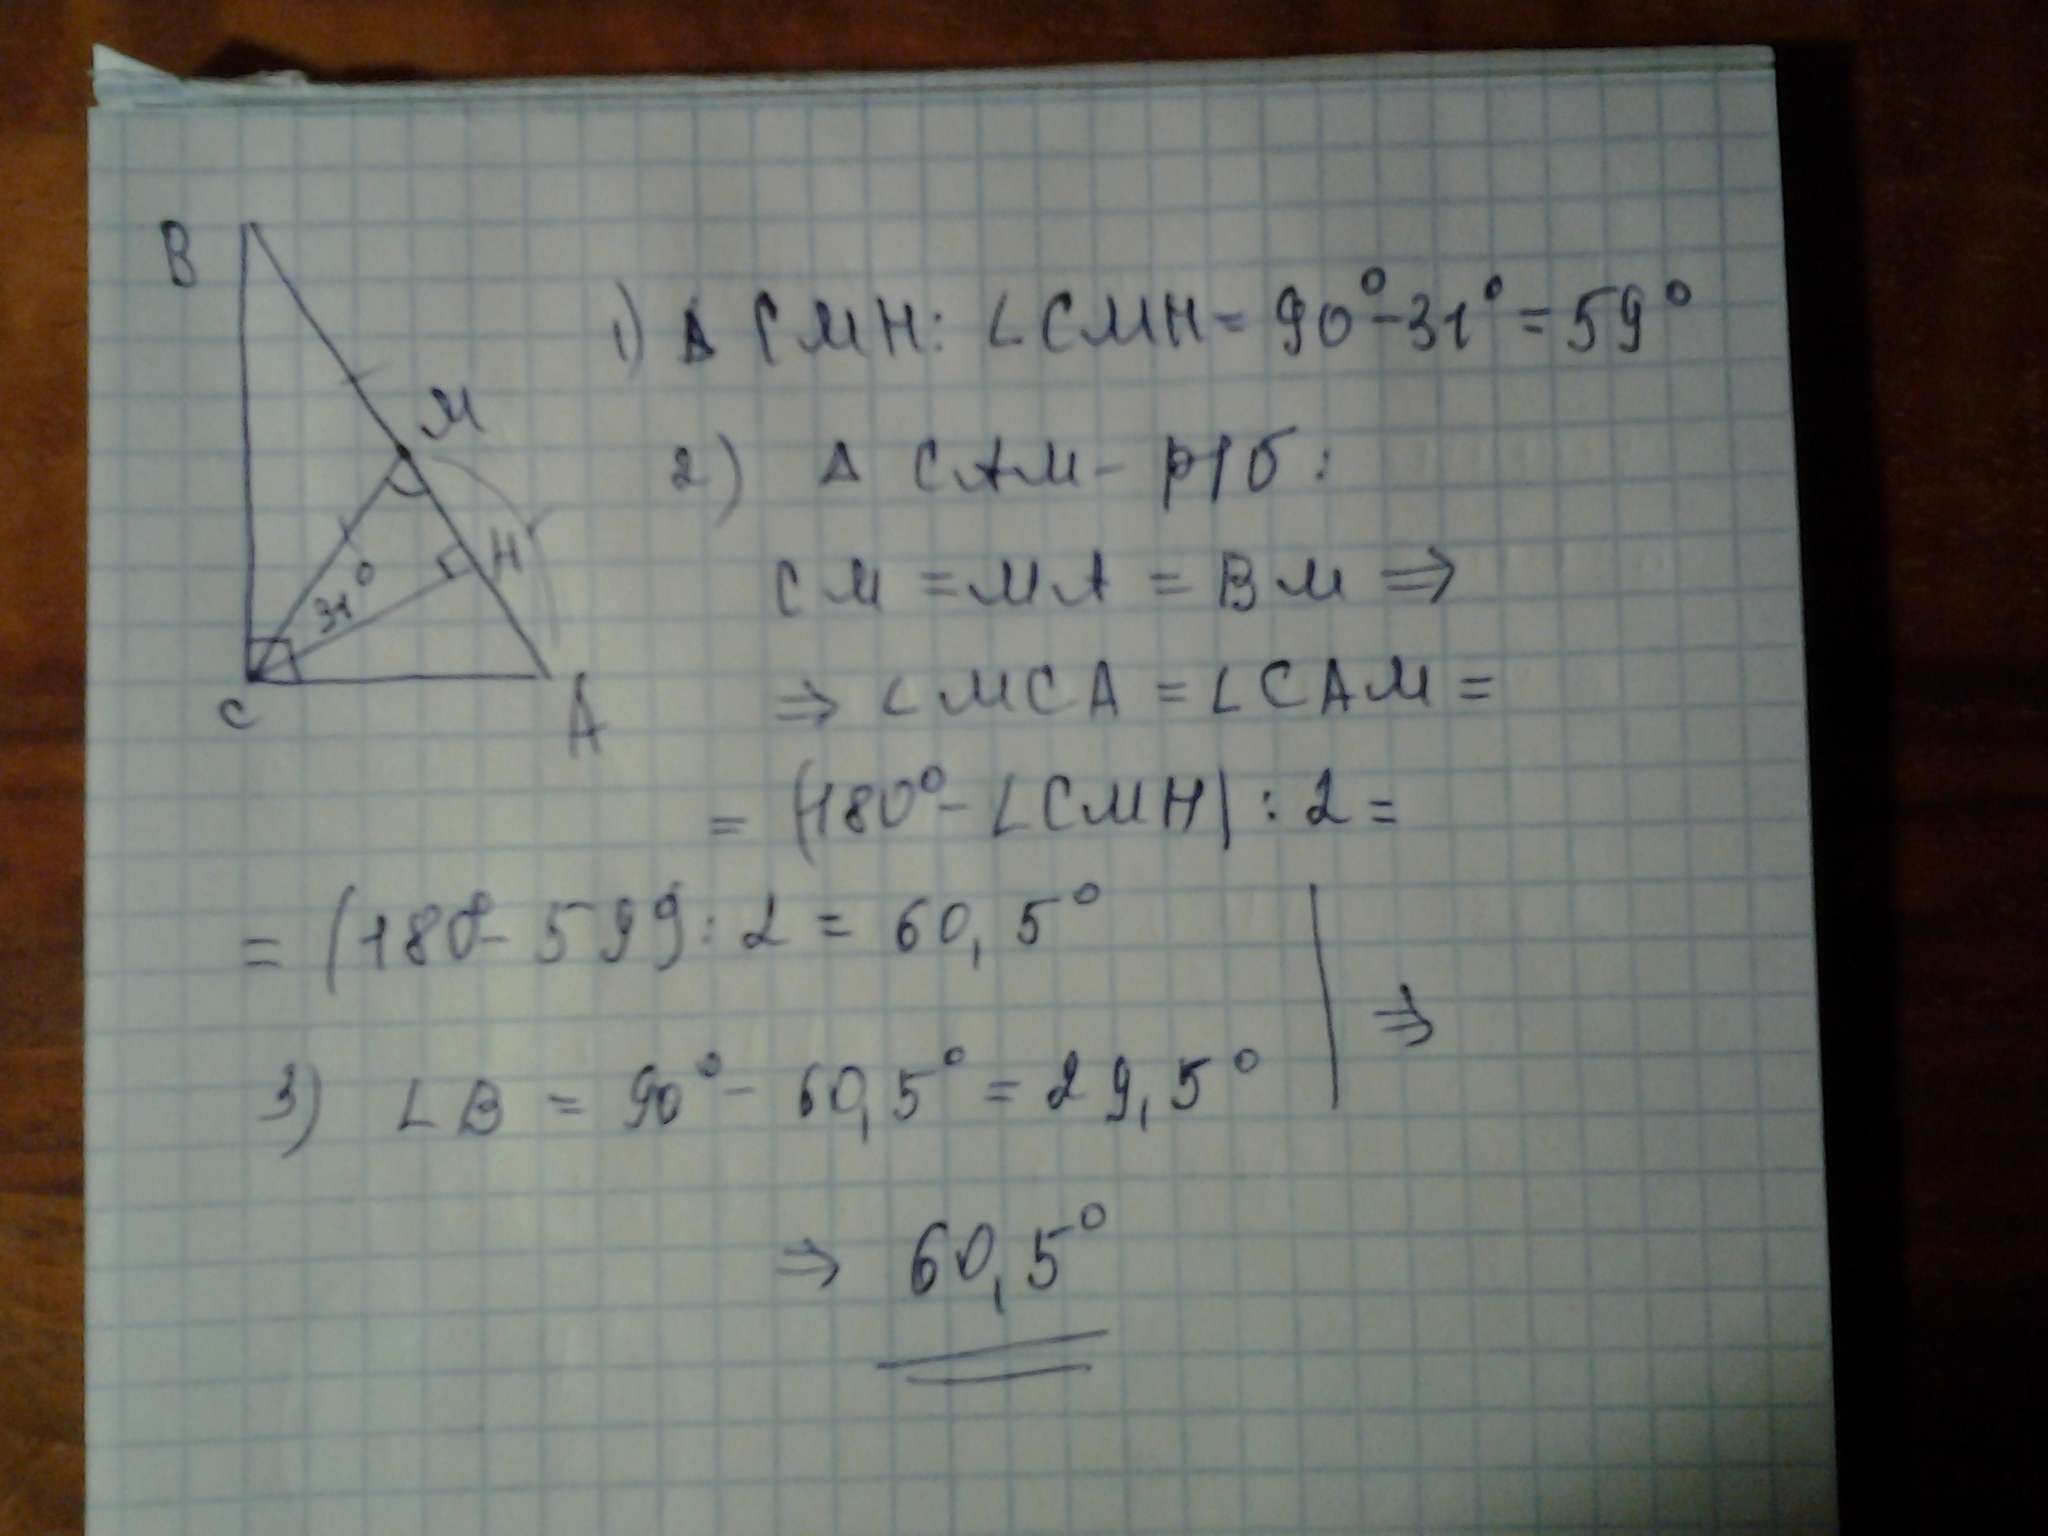 B
M
H
31°
C
A
1) Δ CMH: ∠CMH = 90° - 31° = 59°
2) Δ CAM - р/б:
CM = MA = BM ⇒
⇒ ∠MCA = ∠CAM =
= (180° - ∠CMH) : 2 =
= (180° - 59°) : 2 = 60,5°
3) ∠B = 90° - 60,5° = 29,5° | ⇒
⇒ 60,5°